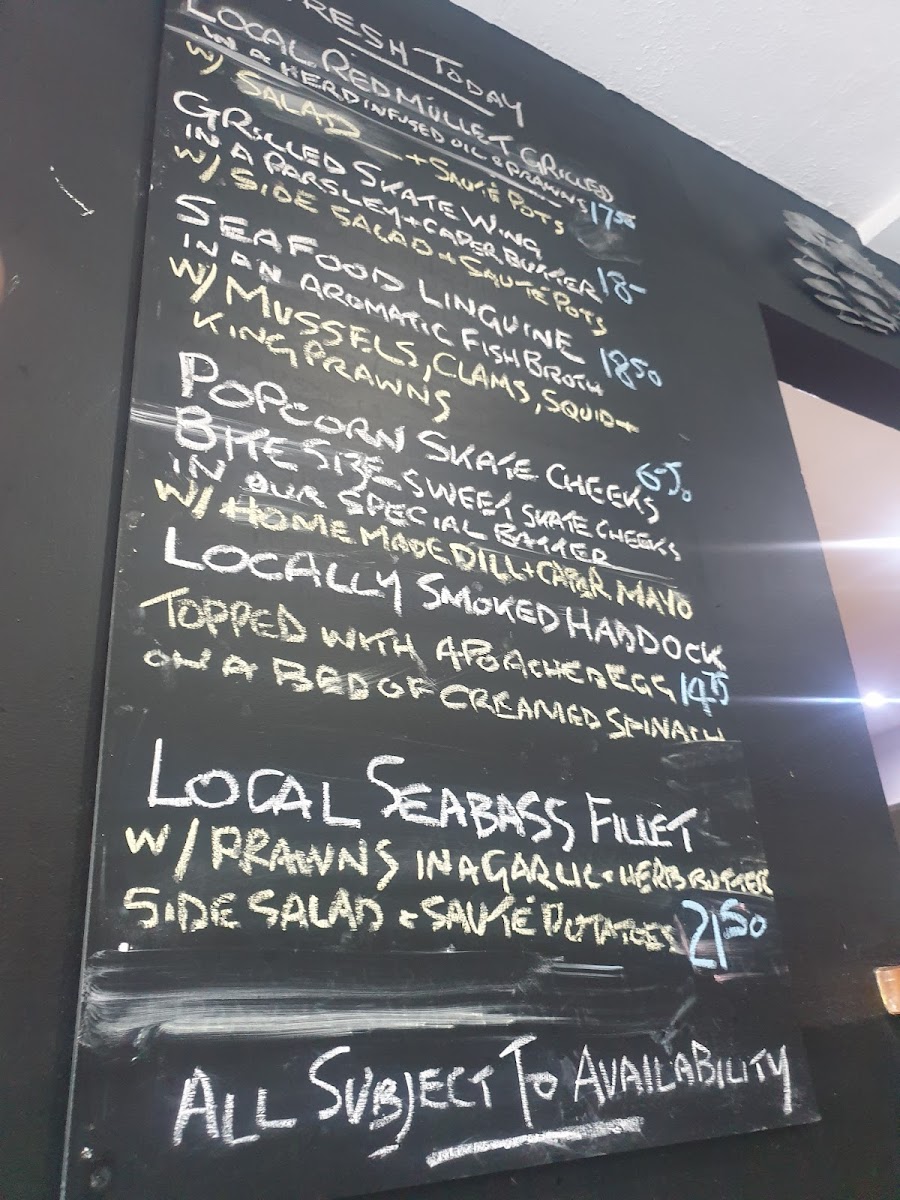 FRESH TODAY
LOCAL RED MULLET GRILLED
IN A HERB INFUSED OIL & PRAWNS 17 50
W/ SALAD + SAUTÉ POTS
GRILLED SKATE WING
IN A PARSLEY + CAPER BUTTER 18-
W/ SIDE SALAD + SAUTÉ POTS
SEAFOOD LINGUINE
IN AN AROMATIC FISH BROTH 18 50
W/ MUSSELS, CLAMS, SQUID +
KING PRAWNS
POPCORN SKATE CHEEKS 6-50
BITE SIZE SWEET SKATE CHEEKS
IN OUR SPECIAL BATTER
W/ HOMEMADE DILL + CAPER MAYO
LOCALLY SMOKED HADDOCK
TOPPED WITH A POACHED EGG 14 75
ON A BED OF CREAMED SPINACH
LOCAL SEABASS FILLET
W/ PRAWNS IN A GARLIC + HERB BUTTER
SIDE SALAD + SAUTÉ POTATOES 21 50
ALL SUBJECT TO AVAILABILITY